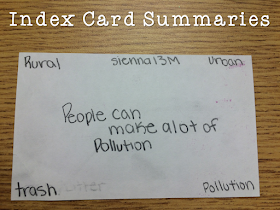 Index Card Summaries
Rural sienna13M Urban
People can
make alot of
Pollution
trash Pollution